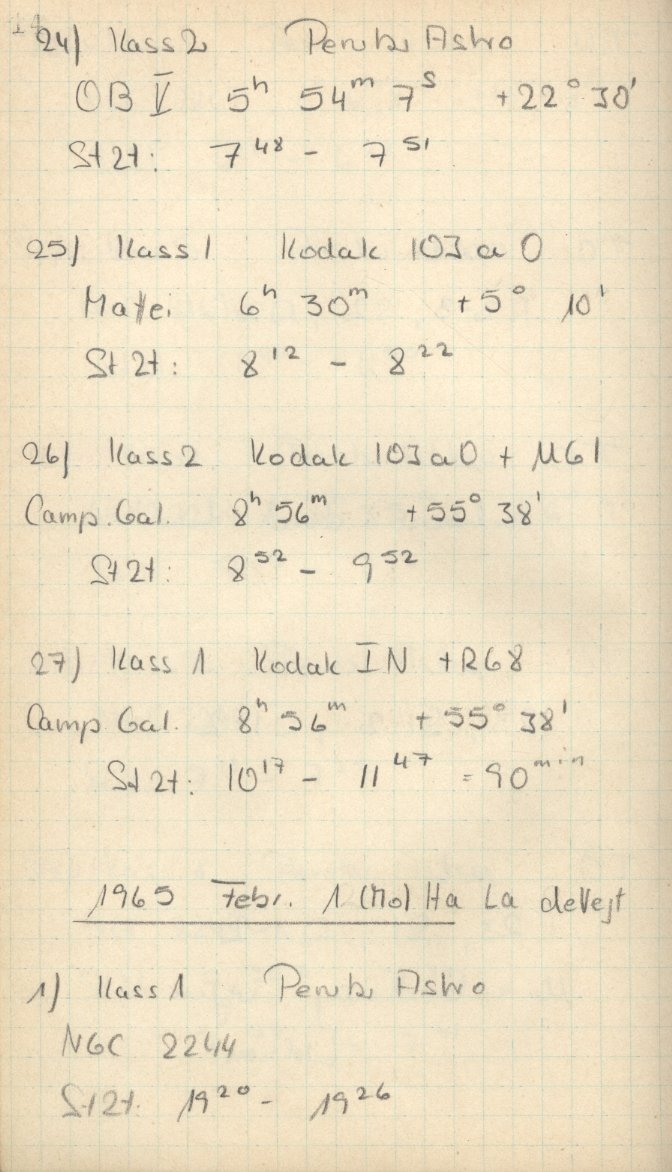 24) Kass 2 Perutz Astro
OB V 5h 54m 7s +22° 30'
St Zt: 7 48 - 7 51
25) Kass 1 Kodak 103 a O
6h 30m +5° 10'
St Zt: 8 12 - 8 22
26) Kass 2 Kodak 103 a O + UG1
Camp. Gal. 8h 56m +55° 38'
St Zt: 8 52 - 9 52
27) Kass 1 Kodak I N + RG8
Camp Gal. 8h 56m +55° 38'
St Zt: 10 17 - 11 47 = 90 min
1965 Febr. 1 (Mo) Ha La deVegt
1) Kass 1 Perutz Astro
NGC 2244
St Zt. 19 20 - 19 26